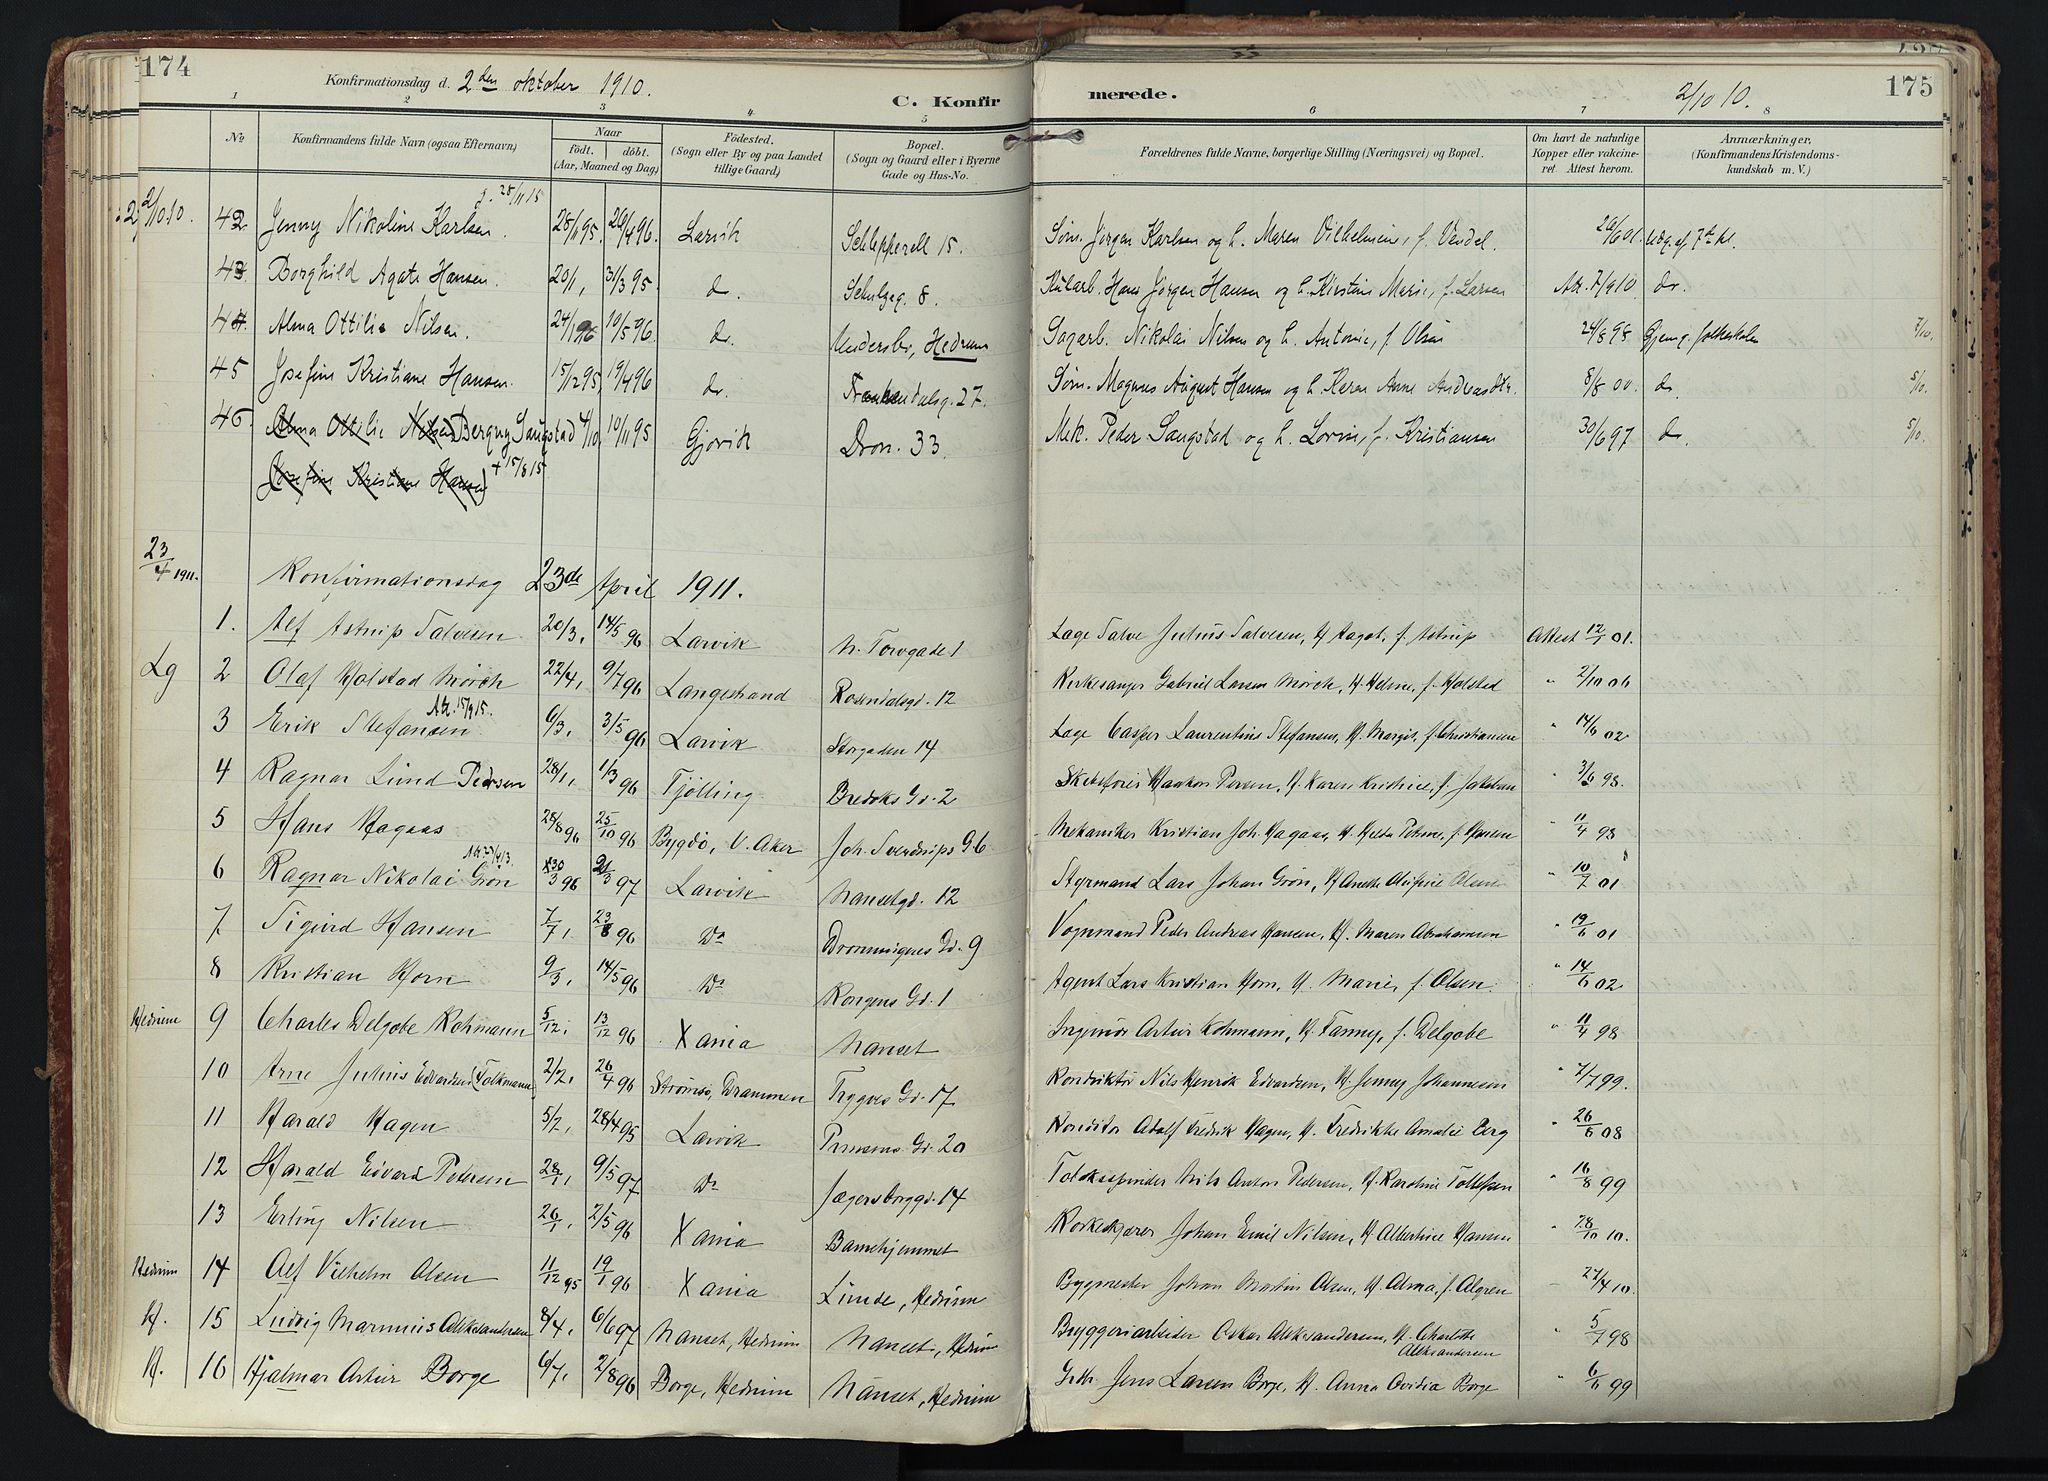 174
Konfirmationsdag d. 2den oktober 1910.
C. Konfirmerede.
2/10 10.
175
1 2 3 4 5 6 7 8
No
Konfirmandens fulde Navn (ogsaa Efternavn)
Naar
födt. döbt.
(Aar, Maaned og Dag)
Födested.
(Sogn eller By og paa Landet
tillige Gaard)
Bopæl.
(Sogn og Gaard eller i Byerne
Gade og Hus-No.
Forældrenes fulde Navne, borgerlige Stilling (Næringsvei) og Bopæl.
Om havt de naturlige
Kopper eller vakcine-
ret Attest herom.
Anmærkninger,
(Konfirmandens Kristendoms-
kundskab m. V.)
28/11 15
2/10.10. 42 Jenny Nikoline Karlsen. 28/1 95. 26/4 96. Larvik Schlepperell 15. Søm. Jørgen Karlsen og h. Maren Vilhelmine, f. Vendel. 26/6 01. Udg. af 7de kl.
43 Borghild Agate Hansen. 20/1, 31/3 95 do. Schulzeg. 8. Hans Jørgen Hansen og h. Kirstine Marie, f. Larsen Att. 7/9 10. do.
44. Alma Ottilie Nilsen. 24/1 96 10/5 96 do. Undersbo, Hedrum Sagarb. Nikolai Nilsen og h. Antonie, f. Olsen 24/8 98 Gjenng. folkeskolen 7/10.
45 Josefine Kristiane Hansen. 15/12 95 19/4 96 do. 27. Søm. Magnus August Hansen og h. Karen Anne Andreasdtr. 8/8 00. do 5/10.
46 Alma Ottilie Nilsen Bergny Sangstad 4/10 10/11 95 Gjøvik Dron. 33. Mek. Peder Sangstad og h. Lovise, f. Kristiansen 30/6 97 do. 5/10.
(Josefine Kristiane Hansen) + 15/8 15
23/4 1911. Konfirmationsdag 23de April 1911.
1. Alf Astrup Salvesen 20/3, 14/5 96 Larvik N. Torvgade 1 Læge Salve Julius Salvesen, H. Aagot, f. Astrup Attest 12/1 01.
Lg 2 Olaf Holstad Mørch 22/4, 9/7 96 Langestrand Rosendalsgd. 12 Kirkesanger Gabriel Larsen Mørch, H. Helene, f. Holstad " 2/10 06
Att. 15/9 15.
3 Erik Stefansen 6/3, 3/5 96 Larvik Storgaden 14 Læge Casper Laurentius Stefansen, H. Margit, f. Christiansen " 14/6 02
4 Ragnar Lund Pedersen 28/1, 1/3 96 Tjölling Bredoks Gd. 2 Haakon Persen, H. Karen Kristine, f. Jakobsen " 3/6 98.
5 Hans Hagaas 28/8 96 25/10 96 Bygdö, V. Aker Joh. Sverdrups G 6 Mekaniker Kristian Joh. Hagaas, H. Helda Petrine, f. Hansen " 11/4 98
6 Ragnar Nikolai Grön 30/3 96 21/3 97 Larvik Nansetgd. 12 Styrmand Lars Johan Grön, H. Anette Olufine Olsen " 10/7 01
7 Sigurd Hansen 7/7, 23/8 96 Do Dronningens Gd. 9 Vognmand Peder Andreas Hansen, H. Maren Abrahamsen " 19/6 01
8 Kristian Horn 9/3, 14/5 96 Do Kongens Gd. 1 Agent Lars Kristian Horn, H. Marie, f. Olsen. " 14/6 02
Hedrum 9 Charles Delgobe Kohmann 5/12, 13/12 96 Xania Nanset Ingeniör Artur Kohmann, H. Fanny, f. Delgobe " 11/4 98
10 Arne Julius Edvardsen (Folkmann) 2/2, 26/4 96 Strømsö, Drammen Trygves Gd. 17 Konduktör Nils Henrik Edvardsen, H. Jenny Johannesen " 7/7 99.
11 Harald Hagen 5/2, 28/4 95 Larvik Prinsens Gd. 20 Konditor Adolf Fredrik Hagen, H. Fredrikke Amalie Berg " 26/6 08
12 Harald Edvard Petersen 28/1, 9/5 97 Do Jægersborggd. 14 Tobakspinder Nils Anton Pedersen, H. Karoline Tollefsen " 16/8 99
13 Erling Nilsen 26/1, 2/5 96 Xania Barnehjemmet Korkeskjærer Johan Emil Nilsen, H. Albertine Hansen " 28/10 10.
Hedrum 14 Alf Vilhelm Olsen 11/12 95 19/1 96 Xania Lunde, Hedrum Bygmester Johan Martin Olsen, H. Alma, f. Algren 27/4 10.
H. 15 Ludvig Marinius Aleksandersen 8/4, 6/6 97 Nanset, Hedrum Nanset, Hedrum Bryggeriarbeider Oskar Aleksandersen, H. Charlotte " 5/7 98
Aleksandersen
H. 16 Hjalmar Artur Borge 6/7, 2/8 96 Borge, Hedrum Nanset, Hedrum Jens Larsen Borge, H. Anna Ovidia Borge " 6/6 99